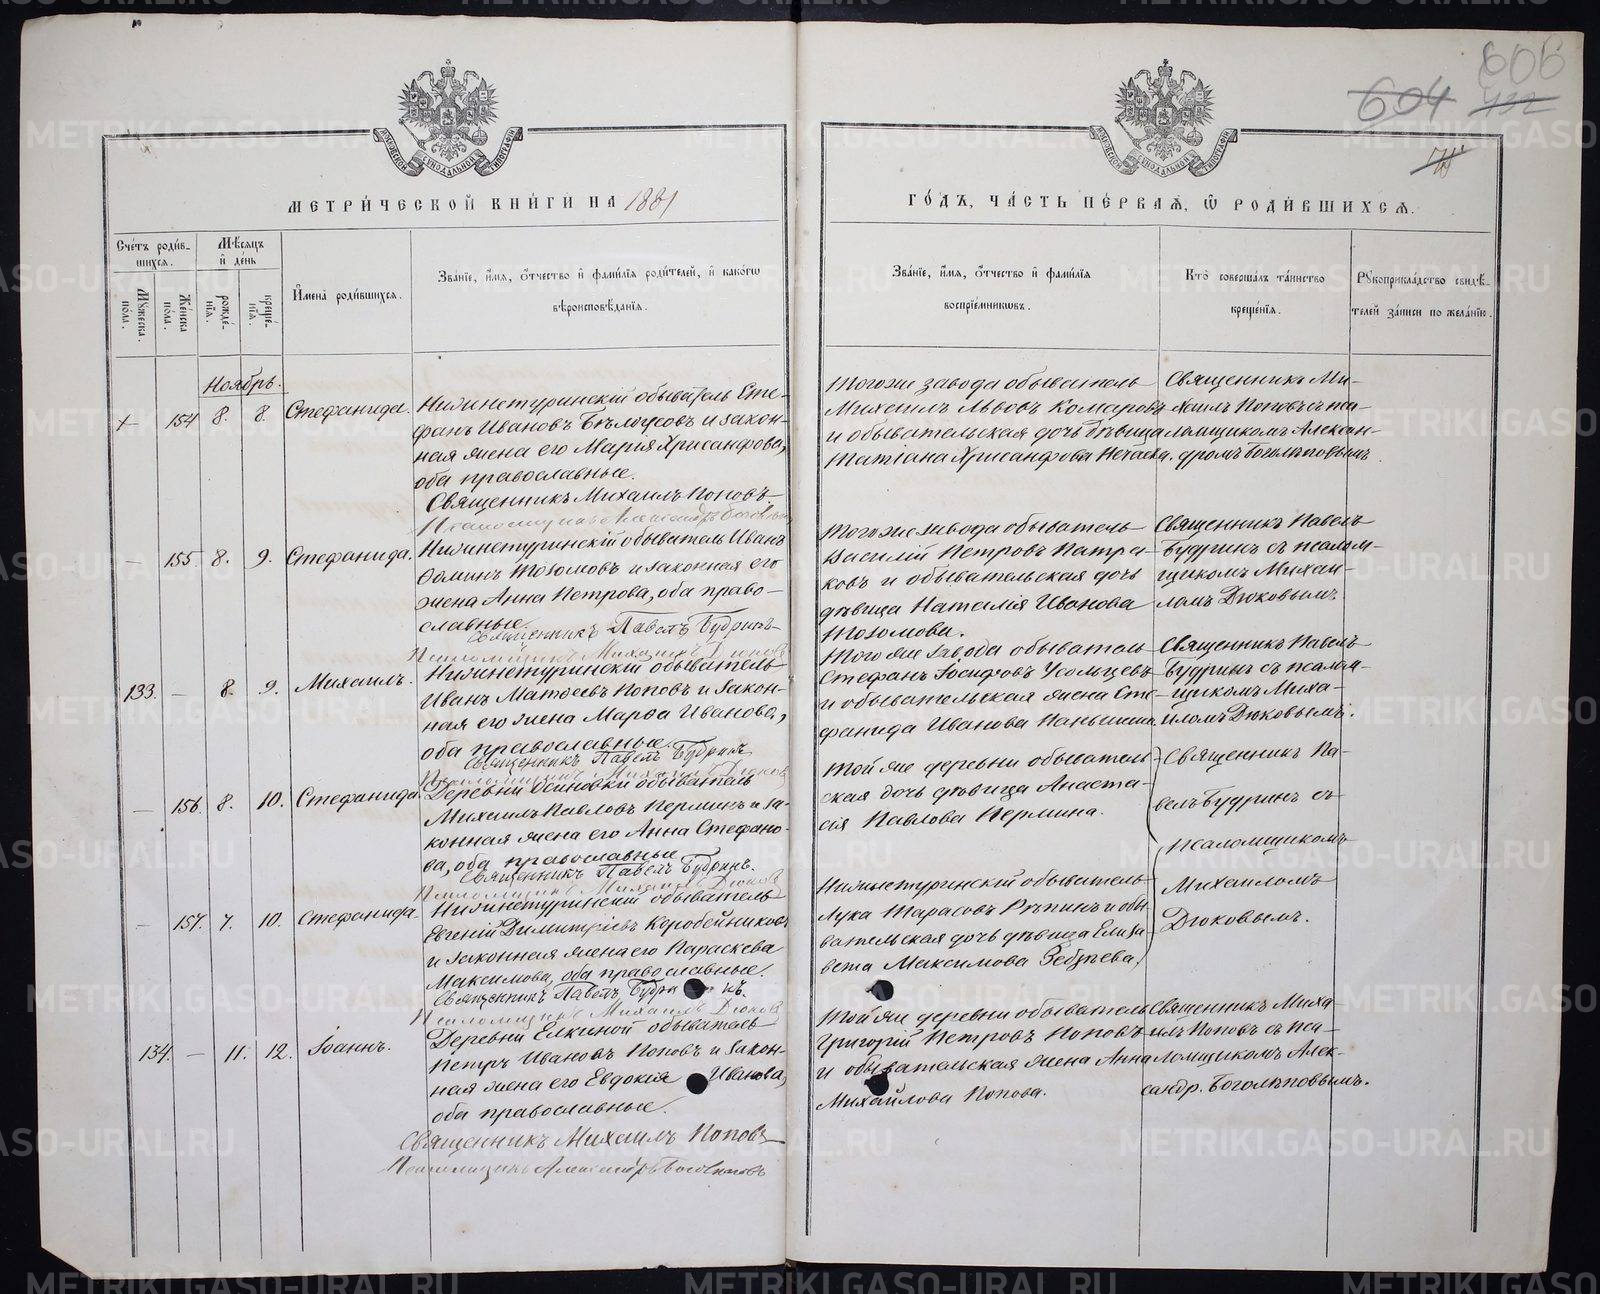 606
604
METRIKI.GASO-URAL.RU
МЕТРИ́ЧЕСКОЙ КНИ́ГИ НА 1881
ГО́ДЪ, ЧА́СТЬ ПЕ́РВАЯ, Ѡ РОДИ́ВШИХСЯ.
Сче́тъ роди́в-
шихся.
Мѣ́сяцъ
и҆ де́нь
Мꙋжеска по́ла.
Же́нска по́ла.
рожде́-нїя.
креще́-нїя.
И҆мена̀ роди́вшихся.
Зва́нїе, и҆́мя, ѻ҆́тчество и҆ фами́лїя роди́телей, и҆ како́гѡ
вѣроисповѣ́данїя.
Зва́нїе, и҆́мя, ѻ҆́тчество и҆ фами́лїя
воспрїе́мниковъ.
Кто̀ соверша́лъ та́инство
креще́нїя.
Рꙋкоприкла́дство свидѣ́-
телей за́писи по жела́нїю.
Ноябрь.
154 8. 8. Стефанида.
Нижнетуринскій обыватель Сте-
фанъ Ивановъ Бѣлоусовъ и закон-
ная жена его Марія Хрисанфова,
оба православные.
Священникъ Михаилъ Поповъ
Того же завода обыватель
Михаилъ Львовъ Комаровъ
и обывательская дочь дѣвица
Татіана Хрисанфова
Священникъ Ми-
хаилъ Поповъ съ пса-
ломщикомъ Алексан-
дромъ Боголѣповымъ
— 155. 8. 9. Стефанида.
Нижнетуринскій обыватель Иванъ
Ѳоминъ Тозомовъ и законная его
жена Анна Петрова, оба право-
славные.
Священникъ Павелъ Будринъ
Псаломщикъ Михаилъ Дюковъ
Того же завода обыватель
Василій Петровъ Патра-
ковъ и обывательская дочь
дѣвица Наталія Иванова
Тозомова.
Священникъ Павелъ
Будринъ съ псалом-
щикомъ Михаи-
ломъ Дюковымъ.
133. — 8. 9. Михаилъ.
Нижнетуринскій обыватель
Иванъ Матѳеевъ Поповъ и закон-
ная его жена Марѳа Иванова,
оба православные.
Священникъ Павелъ Будринъ
Псаломщикъ Михаилъ Дюковъ
Того же завода обыватель
Стефанъ Іосифовъ Усольцевъ
и обывательская жена Сте-
фанида Иванова Паньшина
Священникъ Павелъ
Будринъ съ псалом-
щикомъ Миха-
иломъ Дюковымъ.
— 156. 8. 10. Стефанида.
Деревни Осиновки обыватель
Михаилъ Павловъ Перминъ и за-
конная жена его Анна Стефано-
ва, оба православные
Священникъ Павелъ Будринъ.
Псаломщикъ Михаилъ Дюковъ
Той же деревни обыватель-
ская дочь дѣвица Анаста-
сія Павлова Пермина.
Священникъ Па-
велъ Будринъ съ
псаломщикомъ
Михаиломъ
Дюковымъ.
— 157. 7. 10. Стефанида.
Нижнетуринскій обыватель
Евгеній Димитріевъ Коробейниковъ
и законная жена его Параскева
Максимова, оба православные.
Священникъ Павелъ Будринъ.
Псаломщикъ Михаилъ Дюковъ
Нижнетуринскій обыватель
Лука Тарасовъ Рѣпинъ и обы-
вательская дочь дѣвица Елиза-
вета Максимова
134. — 11. 12. Іоаннъ.
Деревни Елкиной обыватель
Петръ Ивановъ Поповъ и закон-
ная жена его Евдокія Иванова,
оба православные.
Священникъ Михаилъ Поповъ
Псаломщикъ Александръ Боголѣповъ
Той же деревни обыватель
Григорій Петровъ Поповъ
и обывательская жена Анна
Михайлова Попова.
Священникъ Миха-
илъ Поповъ съ пса-
ломщикомъ Алек-
сандр. Боголѣповымъ.